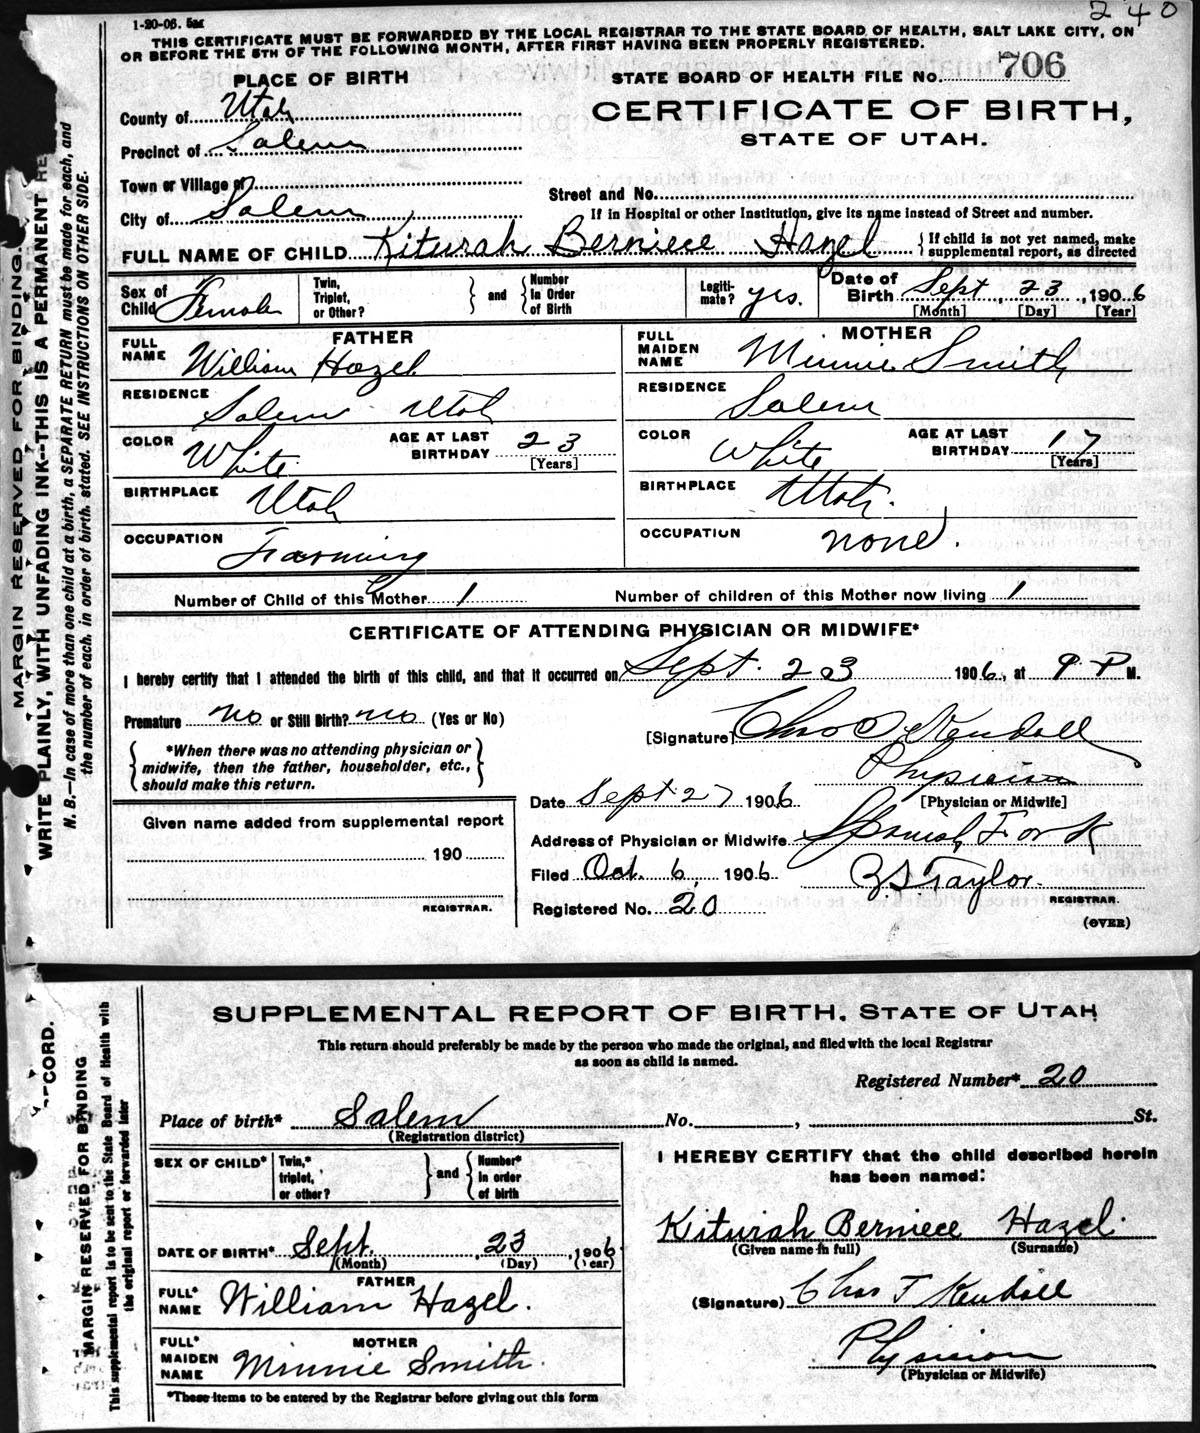 1-20-06. 5M
240
THIS CERTIFICATE MUST BE FORWARDED BY THE LOCAL REGISTRAR TO THE STATE BOARD OF HEALTH, SALT LAKE CITY, ON
OR BEFORE THE 5TH OF THE FOLLOWING MONTH, AFTER FIRST HAVING BEEN PROPERLY REGISTERED.
PLACE OF BIRTH
STATE BOARD OF HEALTH FILE No. 706
County of Utah
CERTIFICATE OF BIRTH,
Precinct of Salem
STATE OF UTAH.
Town or Village of
Street and No.
City of Salem
If in Hospital or other Institution, give its name instead of Street and number.
FULL NAME OF CHILD Kiturah Berniece Hazel { If child is not yet named, make supplemental report, as directed
Sex of Child Female
Twin, Triplet, or Other? } and { Number in Order of Birth
Legitimate? yes.
Date of Birth Sept, 23, 1906
[Month] [Day] [Year]
FATHER
FULL NAME William Hazel
RESIDENCE Salem Utah
COLOR White
AGE AT LAST BIRTHDAY 23
[Years]
BIRTHPLACE Utah
OCCUPATION Farming
MOTHER
FULL MAIDEN NAME Minnie Smith
RESIDENCE Salem
COLOR White
AGE AT LAST BIRTHDAY 17
[Years]
BIRTHPLACE Utah.
OCCUPATION none.
Number of Child of this Mother 1
Number of children of this Mother now living 1
CERTIFICATE OF ATTENDING PHYSICIAN OR MIDWIFE*
I hereby certify that I attended the birth of this child, and that it occurred on Sept. 23 1906, at 9 P M.
Premature no or Still Birth? no (Yes or No)
[Signature] Chas Kendall
{ *When there was no attending physician or midwife, then the father, householder, etc., should make this return. }
Physician
[Physician or Midwife]
Date Sept 27 1906
Given name added from supplemental report
190
REGISTRAR.
Address of Physician or Midwife Spanish Fork
Filed Oct. 6, 1906
Taylor.
REGISTRAR.
Registered No. 20
(OVER)
MARGIN RESERVED FOR BINDING.
WRITE PLAINLY, WITH UNFADING INK--THIS IS A PERMANENT RE
N. B.—In case of more than one child at a birth, a SEPARATE RETURN must be made for each, and
the number of each, in order of birth, stated. SEE INSTRUCTIONS ON OTHER SIDE.
SUPPLEMENTAL REPORT OF BIRTH, STATE OF UTAH
This return should preferably be made by the person who made the original, and filed with the local Registrar
as soon as child is named.
Registered Number* 20
Place of birth* Salem No. , St.
(Registration district)
SEX OF CHILD*
Twin,* triplet, or other? } and { Number* in order of birth
I HEREBY CERTIFY that the child described herein
has been named:
Kiturah Berniece Hazel.
(Given name in full) (Surname)
DATE OF BIRTH* Sept. 23, 1906
(Month) (Day) (Year)
FATHER
FULL* NAME William Hazel.
(Signature) Chas T Kendall
MOTHER
FULL* MAIDEN NAME Minnie Smith.
Physician
(Physician or Midwife)
*These items to be entered by the Registrar before giving out this form
CORD.
MARGIN RESERVED FOR BINDING
This supplemental report is to be sent to the State Board of Health with
the original report or forwarded later